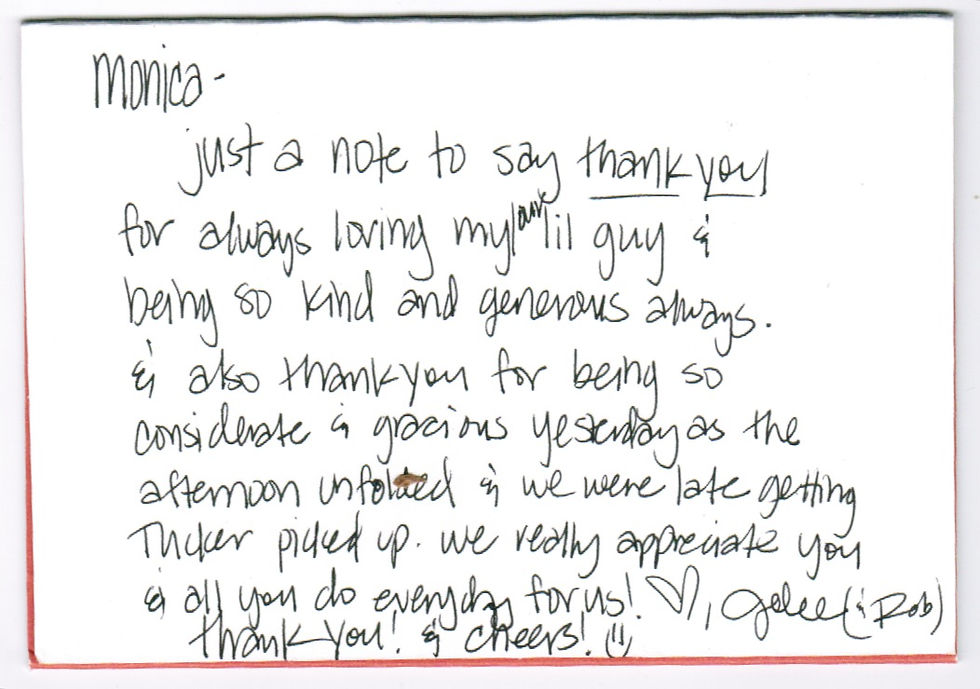 Monica -
just a note to say thank you
for always loving my/our lil guy &
being so kind and generous always.
& also thank you for being so
considerate & gracious yesterday as the
afternoon unfolded & we were late getting
Tucker picked up. we really appreciate you
& all you do everyday for us! ♡, (& Rob)
thank you! & cheers! ☺